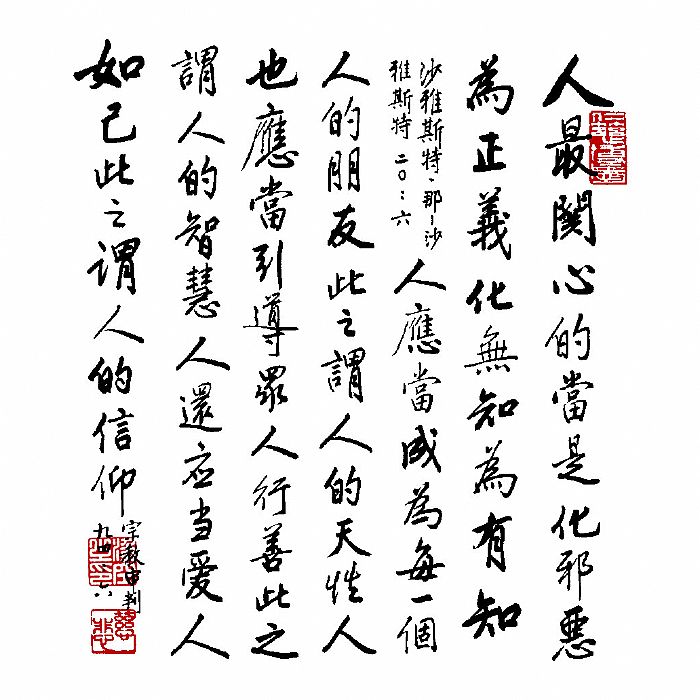 人最關心的當是化邪惡
為正義化無知為有知
沙雅斯特·那-沙
雅斯特 二〇:六
人應當成為每一個
人的朋友此之謂人的天性人
也應當引導眾人行善此之
謂人的智慧人還应当愛人
如己此之謂人的信仰
宗教审判